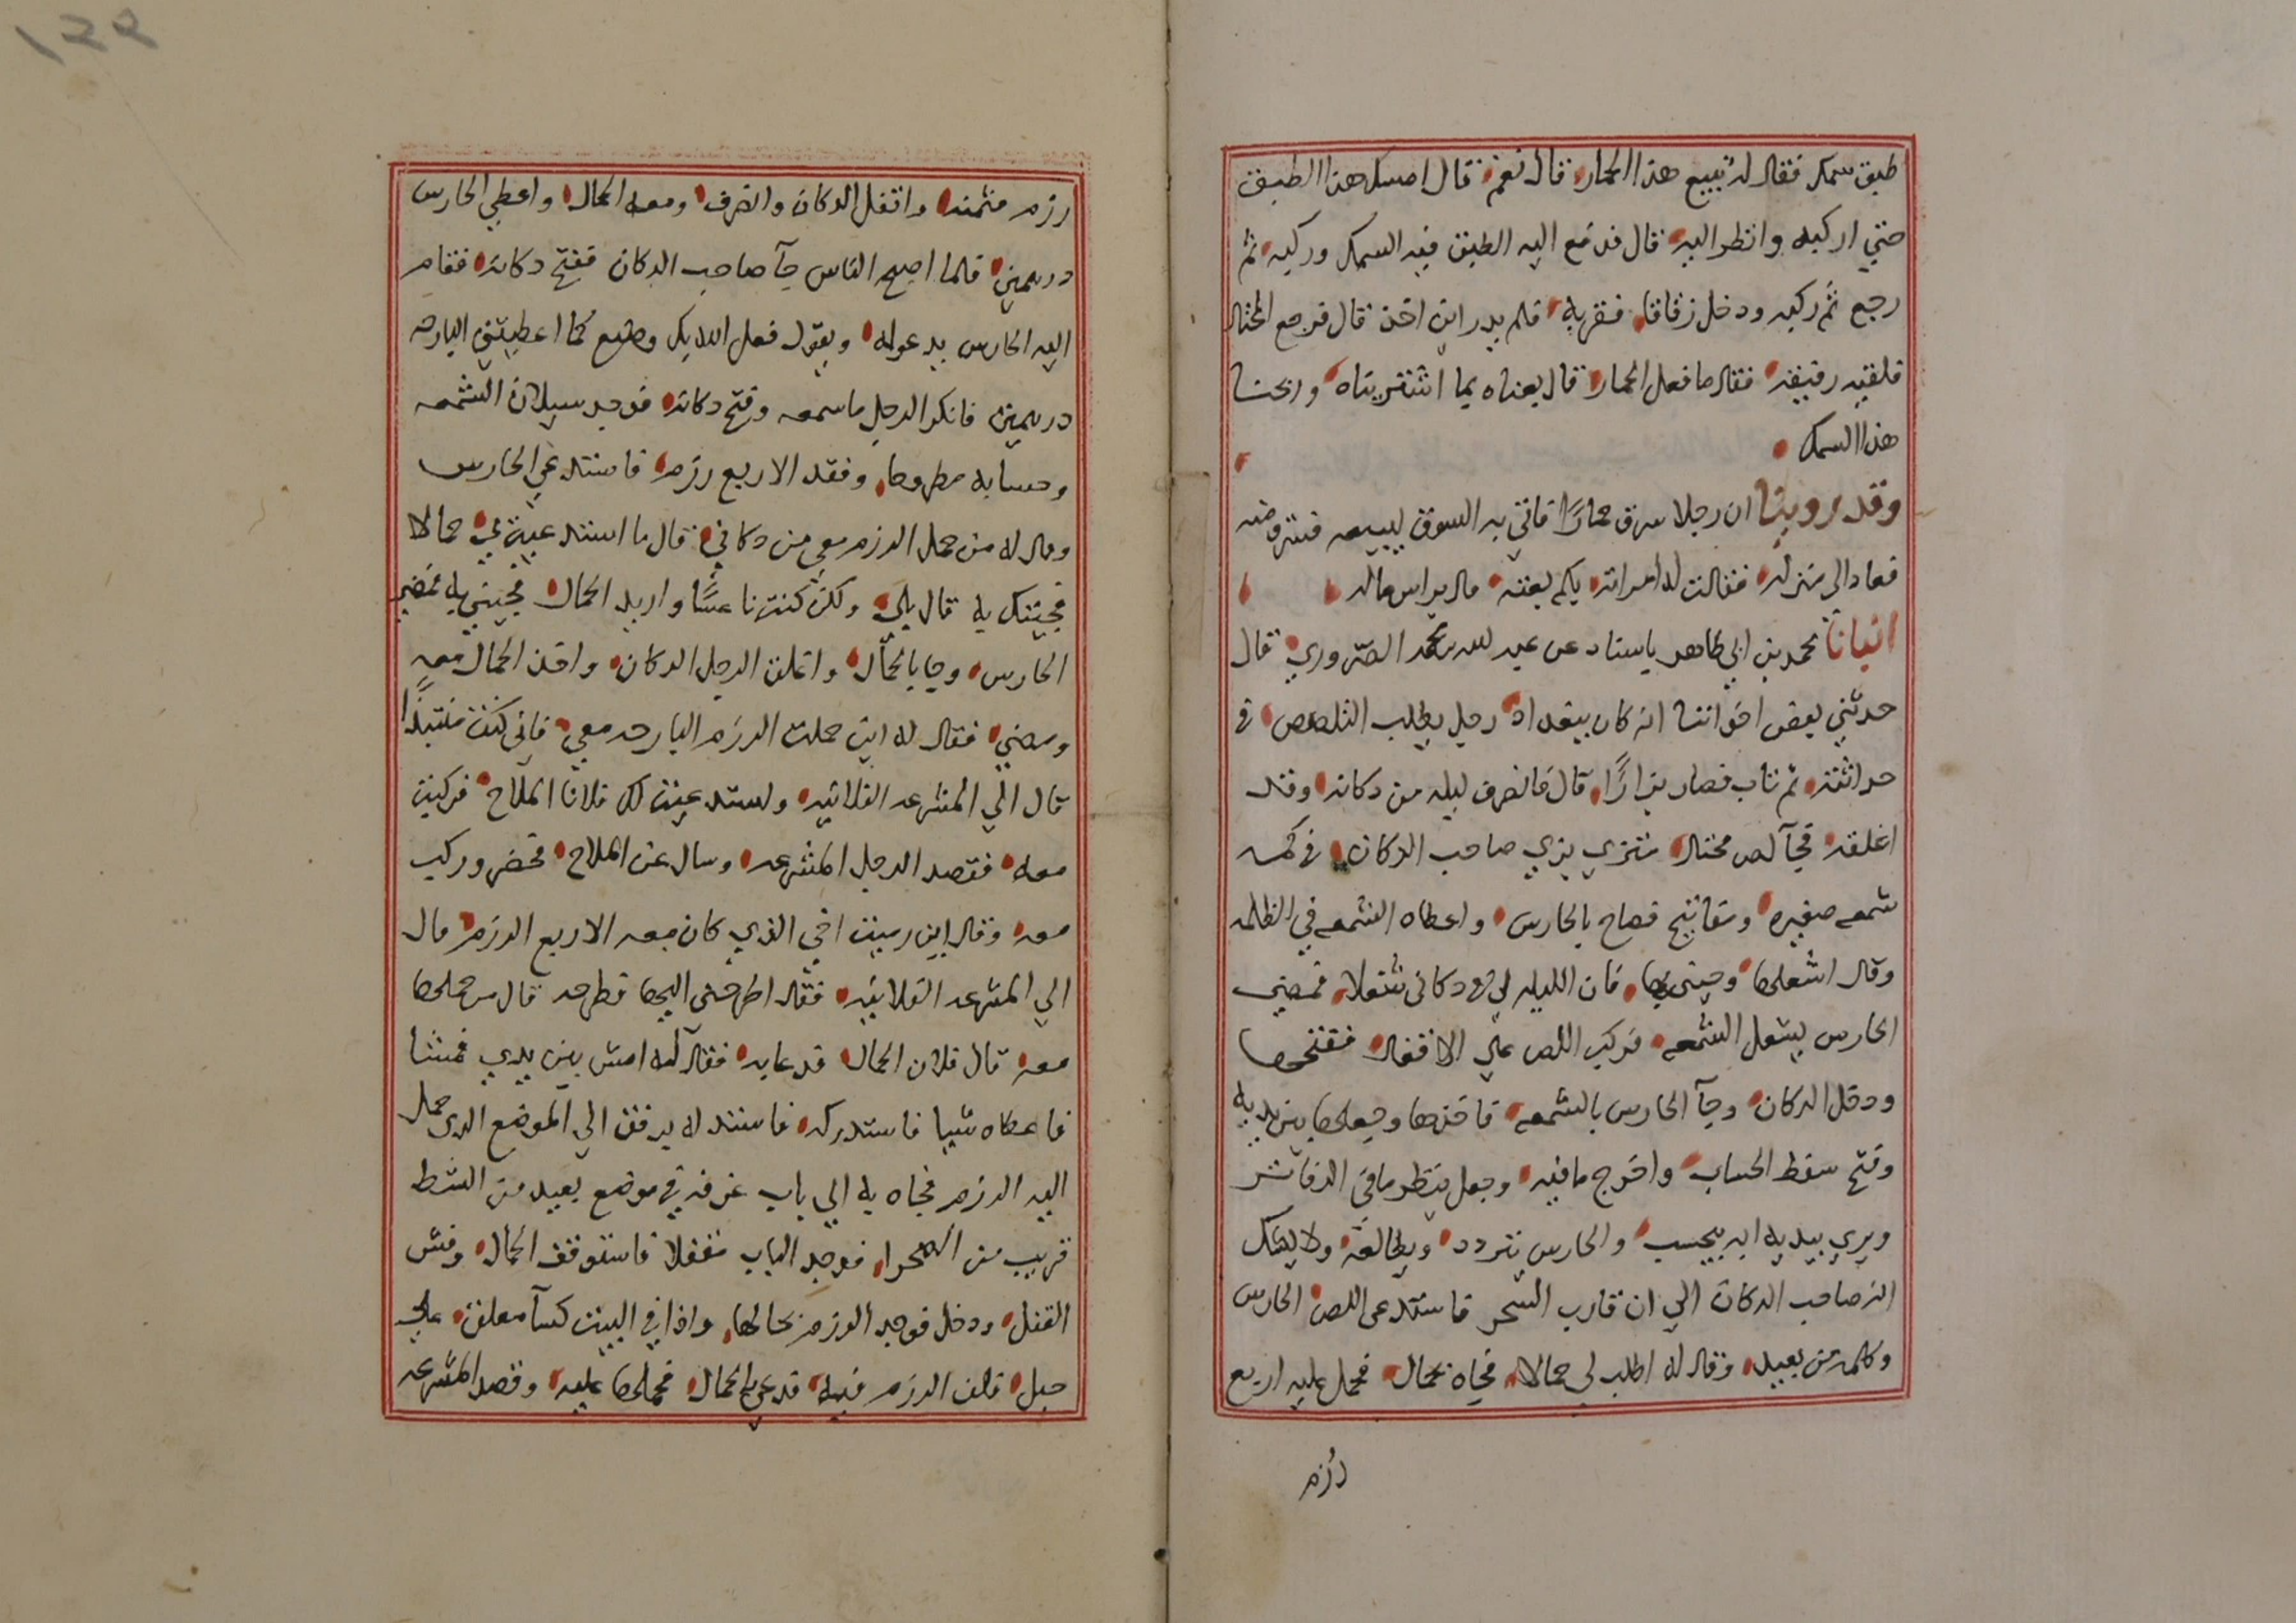 ١٢٢
طبق سمك فقال له تبيع هذا الحمار قال نعم قال امسك هذا الطبق
حتي اركبه وانظر اليه قال فدفع اليه الطبق فيه السمك وركبه ثم
رجع ثم ركبه ودخل زقاقا ففر به فلم يدر اين اخذ قال فرجع المحتال
فلقيه رفيقه فقال ما فعل الحمار قال بعناه بما اشتريناه وربحنا
هذا السمك
وقد روينا ان رجلا سرق حمارا فاتي به السوق ليبيعه فسرق منه
فعاد الى منزله فقالت له امراته بكم بعته قال براس ماله
انبانا محمد بن ابي طاهر باسناد عن عبد الله بن محمد الصروري قال
حدثني بعض اخواننا انه كان ببغداد رجل يطلب التلصص في
حداثته ثم تاب فصار بزازا قال فانصرف ليله من دكانه وقد
اغلقه فجآ لص محتال متزي بزي صاحب الدكان في كمه
شمعه صغيره ومفاتيح فصاح بالحارس واعطاه الشمعه في الظلمه
وقال اشعلها وجيني بها فان الليله لي في دكاني شغلا فمضي
الحارس ليشعل الشمعه فركب اللص علي الاقفال ففتحها
ودخل الدكان وجآ الحارس بالشمعه فاخذها وجعلها بين يديه
وفتح سفط الحساب واخرج ما فيه وجعل ينظر ما في الدفاتر
ويري بيديه انه يحسب والحارس يتردد ويطالعه ولا يشك
انه صاحب الدكان الي ان قارب السحر فاستدعى اللص الحارس
وكلمه من بعيد وقال له اطلب لي حمالا فجاه بحمال فحمل عليه اربع
رزم
رزم مثمنه واقفل الدكان وانصرف ومعه الحمال واعطي الحارس
درهمين فلما اصبح الناس جآ صاحب الدكان ففتح دكانه فقام
اليه الحارس يدعوله ويقول فعل الله بك وصنع كما اعطيتني البارحه
درهمين فانكر الرجل ما سمعه وفتح دكانه فوجد سيلان الشمعه
وحسابه مطروحا وفقد الاربع رزم فاستدعي الحارس
وقال له من حمل الرزم معي من دكاني قال ما استدعيت لي حمالا
فجيتك به قال بلى ولكن كنت ناعسًا واريد الحمال فجيني به فمضي
الحارس وجا بالحمال واغلق الرجل الدكان واخذ الحمال معه
ومضي فقال له اين حملت الرزم البارحه معي فاني كنت منتبذًا
قال الي المشرعه الفلانيه واستدعيت لك فلانا الملاح فركبت
معه فقصد الرجل المشرعه وسال عن الملاح فحضر وركب
معه وقال اين رميت اخي الذي كان معه الاربع الرزم قال
الي المشرعه الفلانيه فقال اطرحني اليها فطرحه قال من حملها
معه قال فلان الحمال فدعابه فقال له امش بين يدي فمشا
فاعطاه شيا فاستدركه فاستدله برفق الي الموضع الذي حمل
اليه الرزم فجاه به الي باب غرفه في موضع بعيد من الشط
قريب من الصحرا فوجد الباب مقفلا فاستوقف الحمال وفش
القفل ودخل فوجد الرزم بحالها واذا في البيت كسآ معلق على
حبل فلف الرزم فيه فدعي بالحمال فحملها عليه وقصد المشرعه